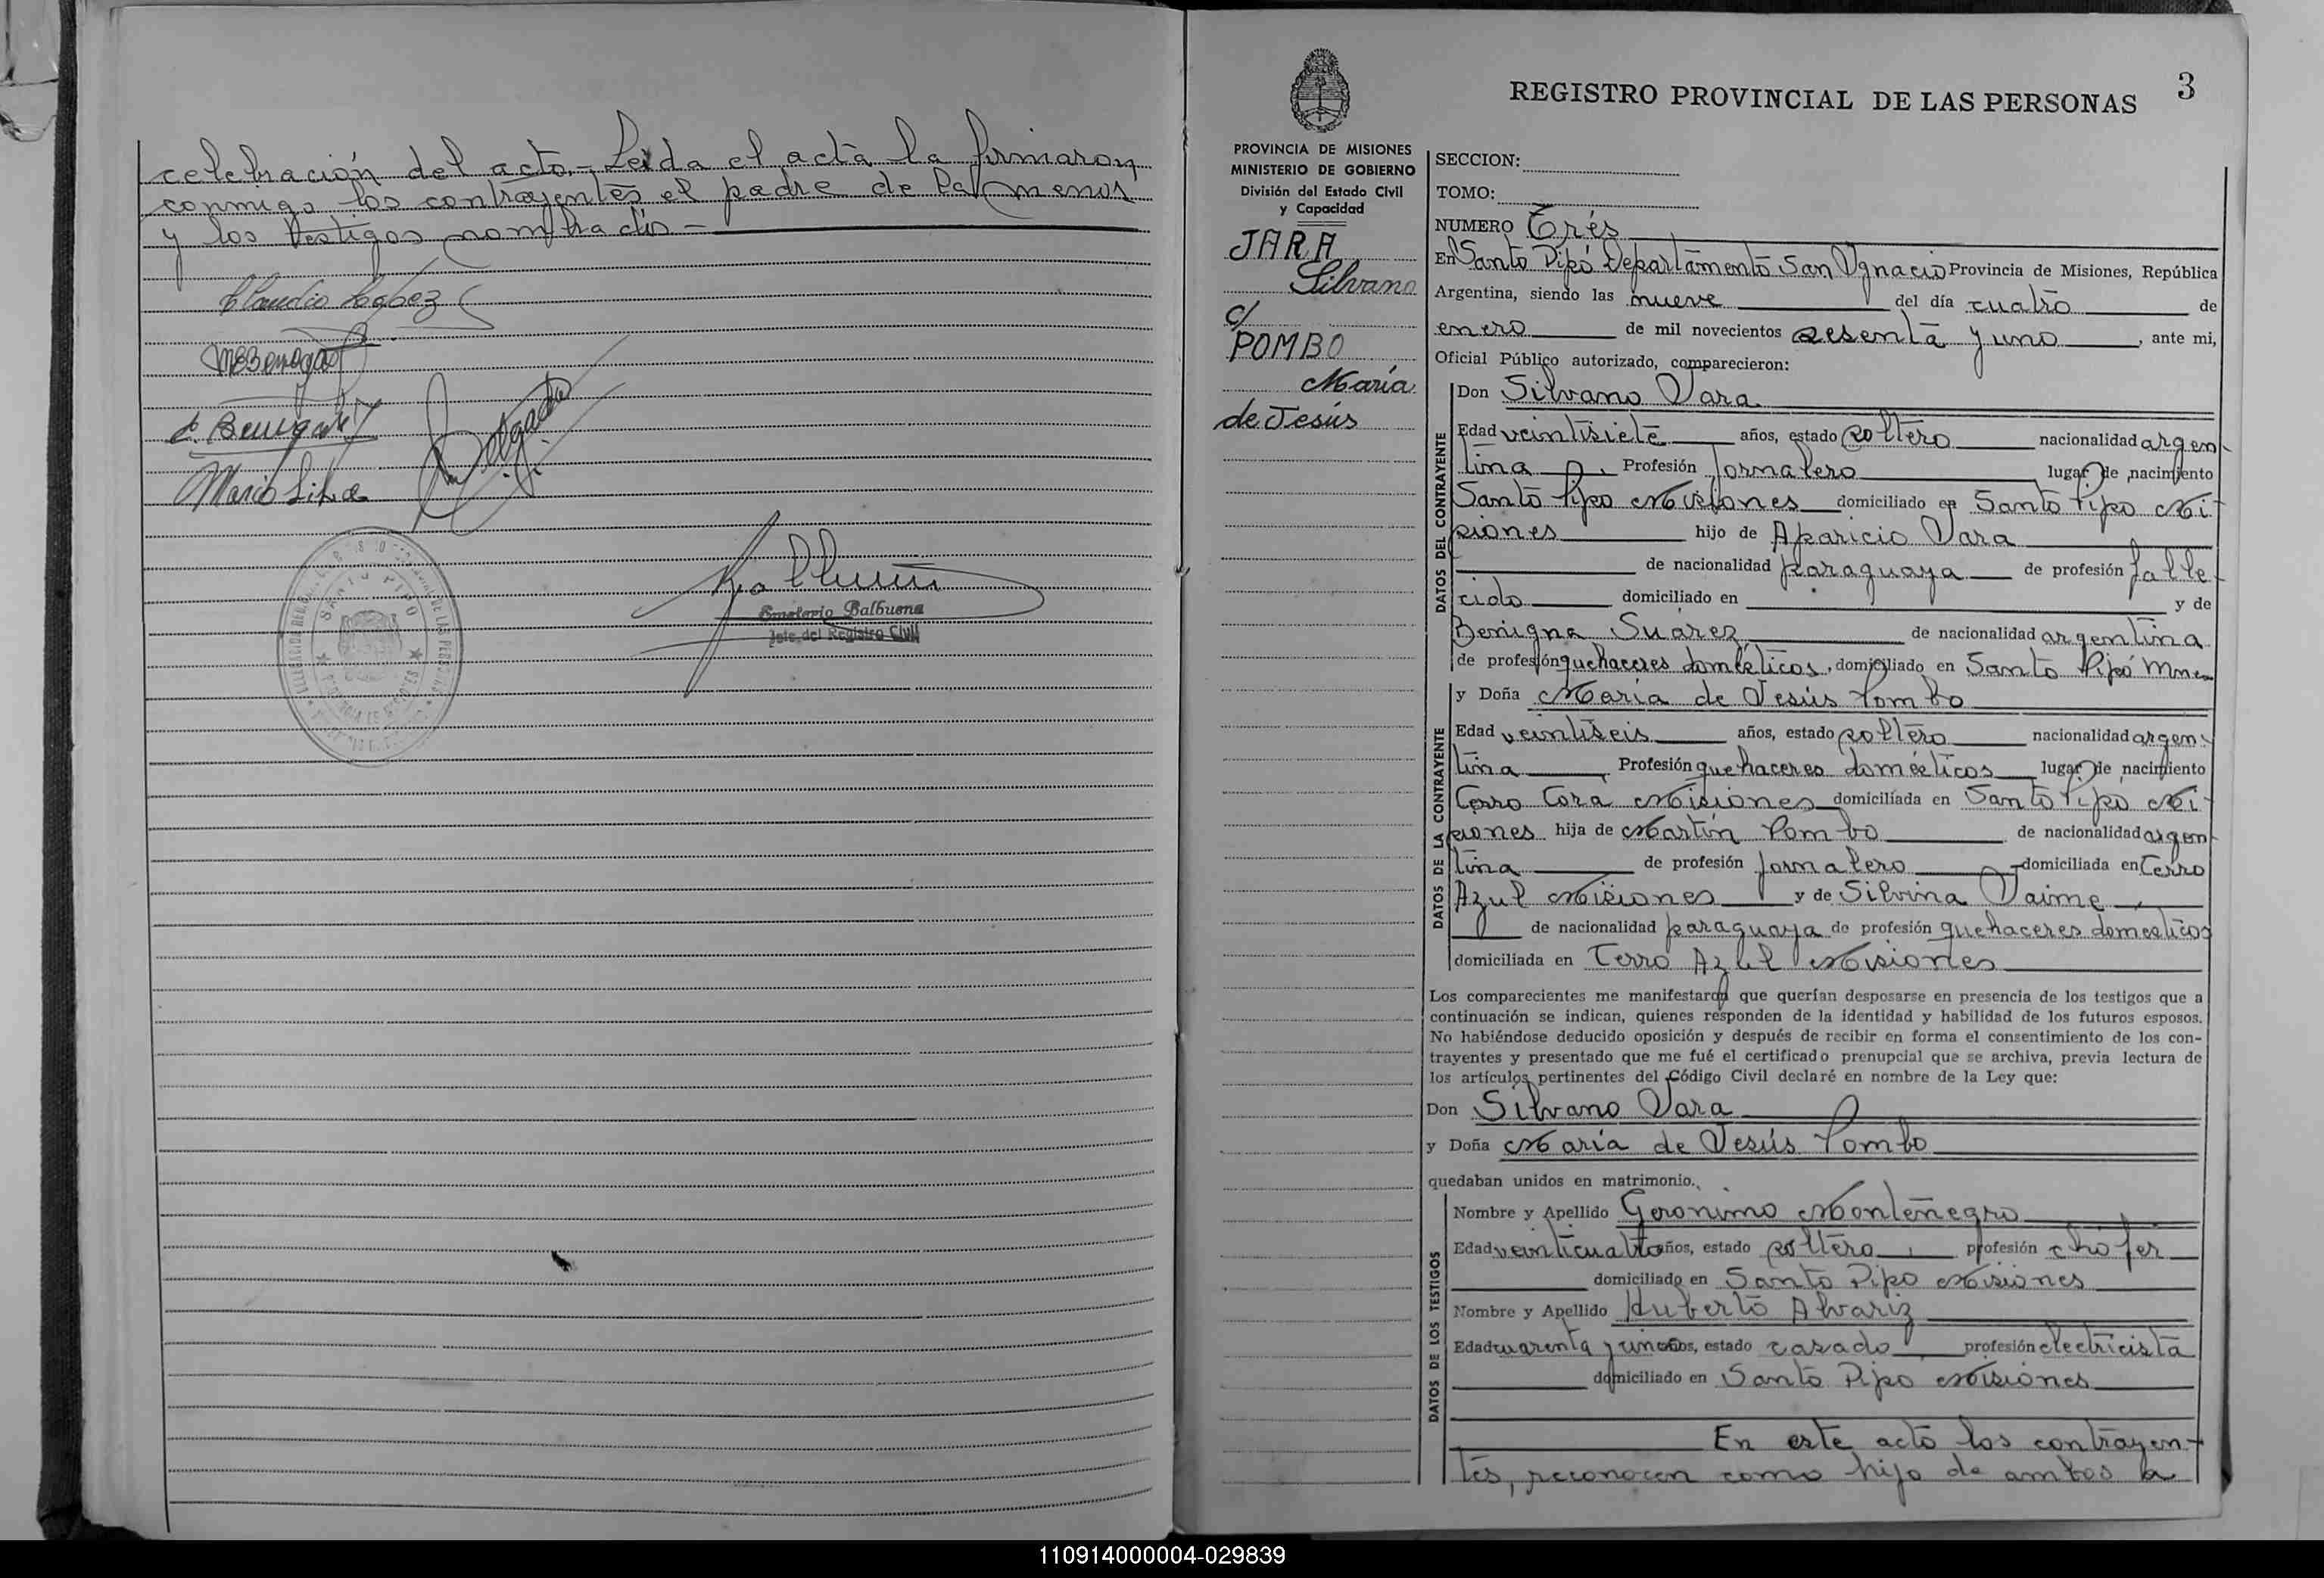 celebración del acto.- Leida el acta la firmaron
conmigo los contrayentes el padre de la menor
y los testigos nombrados -
Mario Silva
SANTO PIPO
Emeterio Balbuena
Jefe del Registro Civil
3
REGISTRO PROVINCIAL DE LAS PERSONAS
PROVINCIA DE MISIONES
MINISTERIO DE GOBIERNO
División del Estado Civil
y Capacidad
JARA
Silvano
c/
POMBO
María
de Jesús
SECCION:
TOMO:
NUMERO Trés
En Santo Pipó Departamento San Ygnacio Provincia de Misiones, República
Argentina, siendo las nueve del día cuatro de
enero de mil novecientos sesenta y uno, ante mi,
Oficial Público autorizado, comparecieron:
DATOS DEL CONTRAYENTE
Don Silvano Jara
Edad veintisiete años, estado soltero nacionalidad argen-
tina. Profesión Jornalero lugar de nacimiento
Santo Pipo Misiones domiciliado en Santo Pipo Mi-
siones hijo de Aparicio Jara
de nacionalidad paraguaya de profesión falle-
cido domiciliado en y de
Benigna Suárez de nacionalidad argentina
de profesión quehaceres domésticos, domiciliado en Santo Pipó Mnes
DATOS DE LA CONTRAYENTE
y Doña María de Jesús Pombo
Edad veintiseis años, estado soltero nacionalidad argen-
tina. Profesión quehaceres domésticos lugar de nacimiento
Cerro Corá Misiones domiciliada en Santo Pipo Mi-
siones hija de Martín Pombo de nacionalidad argen-
tina de profesión jornalero domiciliada en Cerro
Azul Misiones y de Silvina Jaime
de nacionalidad paraguaya de profesión quehaceres domesticos
domiciliada en Cerro Azul Misiones
Los comparecientes me manifestaron que querían desposarse en presencia de los testigos que a
continuación se indican, quienes responden de la identidad y habilidad de los futuros esposos.
No habiéndose deducido oposición y después de recibir en forma el consentimiento de los con-
trayentes y presentado que me fué el certificado prenupcial que se archiva, previa lectura de
los artículos pertinentes del Código Civil declaré en nombre de la Ley que:
Don Silvano Jara
y Doña María de Jesús Pombo
quedaban unidos en matrimonio.
DATOS DE LOS TESTIGOS
Nombre y Apellido Geronimo Montenegro
Edad veinticuatro años, estado soltero, profesión chofer
domiciliado en Santo Pipo Misiones
Nombre y Apellido Huberto Alvariz
Edad cuarenta y un años, estado casado profesión electricista
domiciliado en Santo Pipo Misiones
En este acto los contrayen-
tes, reconocen como hijo de ambos a
110914000004-029839